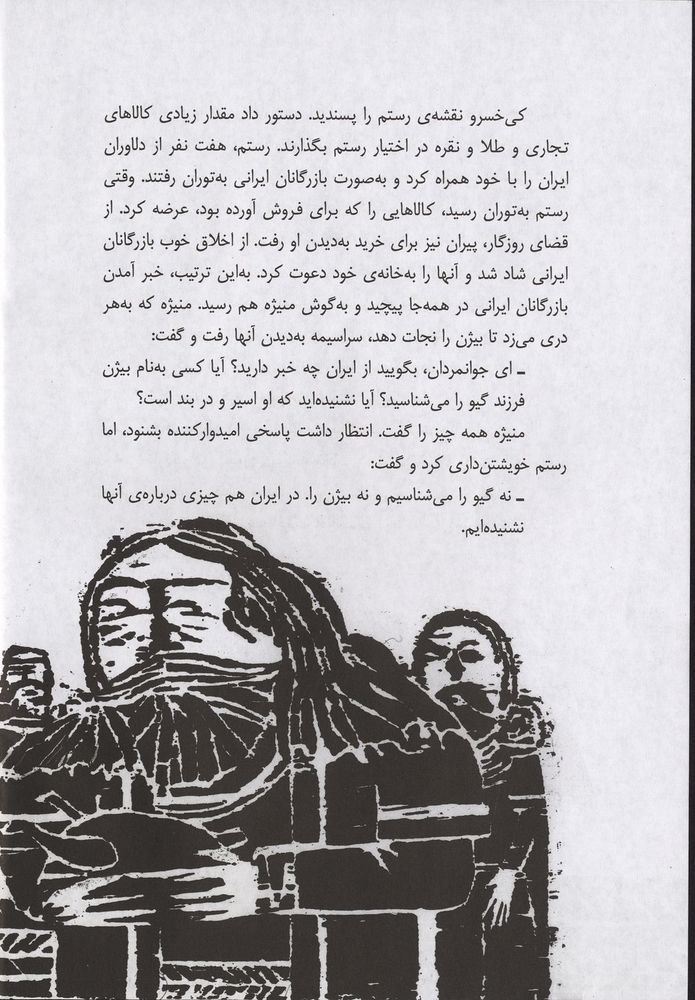 کی‌خسرو نقشه‌ی رستم را پسندید. دستور داد مقدار زیادی کالاهای
تجاری و طلا و نقره در اختیار رستم بگذارند. رستم، هفت نفر از دلاوران
ایران را با خود همراه کرد و به‌صورت بازرگانان ایرانی به‌توران رفتند. وقتی
رستم به‌توران رسید، کالاهایی را که برای فروش آورده بود، عرضه کرد. از
قضای روزگار، پیران نیز برای خرید به‌دیدن او رفت. از اخلاق خوب بازرگانان
ایرانی شاد شد و آنها را به‌خانه‌ی خود دعوت کرد. به‌این ترتیب، خبر آمدن
بازرگانان ایرانی در همه‌جا پیچید و به‌گوش منیژه هم رسید. منیژه که به‌هر
دری می‌زد تا بیژن را نجات دهد، سراسیمه به‌دیدن آنها رفت و گفت:
ـ ای جوانمردان، بگویید از ایران چه خبر دارید؟ آیا کسی به‌نام بیژن
فرزند گیو را می‌شناسید؟ آیا نشنیده‌اید که او اسیر و در بند است؟
منیژه همه چیز را گفت. انتظار داشت پاسخی امیدوارکننده بشنود، اما
رستم خویشتن‌داری کرد و گفت:
ـ نه گیو را می‌شناسیم و نه بیژن را. در ایران هم چیزی درباره‌ی آنها
نشنیده‌ایم.